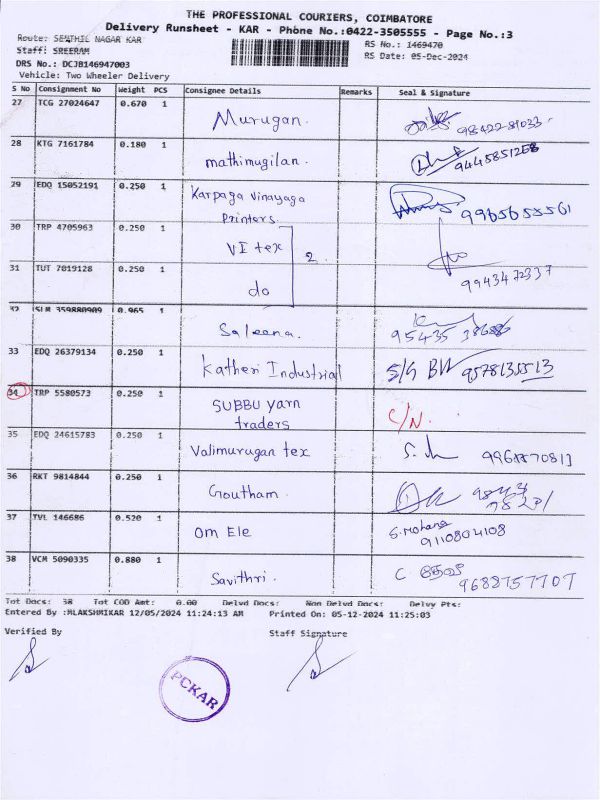 THE PROFESSIONAL COURIERS, COIMBATORE
Delivery Runsheet - KAR - Phone No.:0422-3505555 - Page No.:3
Route: SENTHIL NAGAR KAR
RS No.: 1469470
Staff: SREERAM
RS Date: 05-Dec-2024
DRS No.: DCJB146947003
Vehicle: Two Wheeler Delivery
S No Consignment No Weight PCS Consignee Details Remarks Seal & Signature
27 TCG 27024647 0.670 1 Murugan.
28 KTG 7161784 0.180 1 mathimugilan. 9445851258
29 EDQ 15052191 0.250 1 Karpaga Vinayaga
Printers. 9965655561
30 TRP 4705963 0.250 1 VI tex 2
31 TUT 7019128 0.250 1 do 9943472337
32 SLM 359880909 0.965 1
Saleena. 95435 38686
33 EDQ 26379134 0.250 1 Katheri Industrial 9578135513
34 TRP 5580573 0.250 1 SUBBU yarn
traders C/N.
35 EDQ 24615783 0.250 1 Valimurugan tex
36 RKT 9814844 0.250 1 Goutham.
37 TVL 146686 0.520 1 Om Ele S. Mohana
9110804108
38 VCM 5090335 0.880 1 Savithri. C. தேவி
9688757707
Tot Docs: 38 Tot COD Amt: 0.00 Delvd Docs: Non Delvd Docs: Delvy Pts:
Entered By :MLAKSHMIKAR 12/05/2024 11:24:13 AM Printed On: 05-12-2024 11:25:03
Verified By Staff Signature
PCKAR